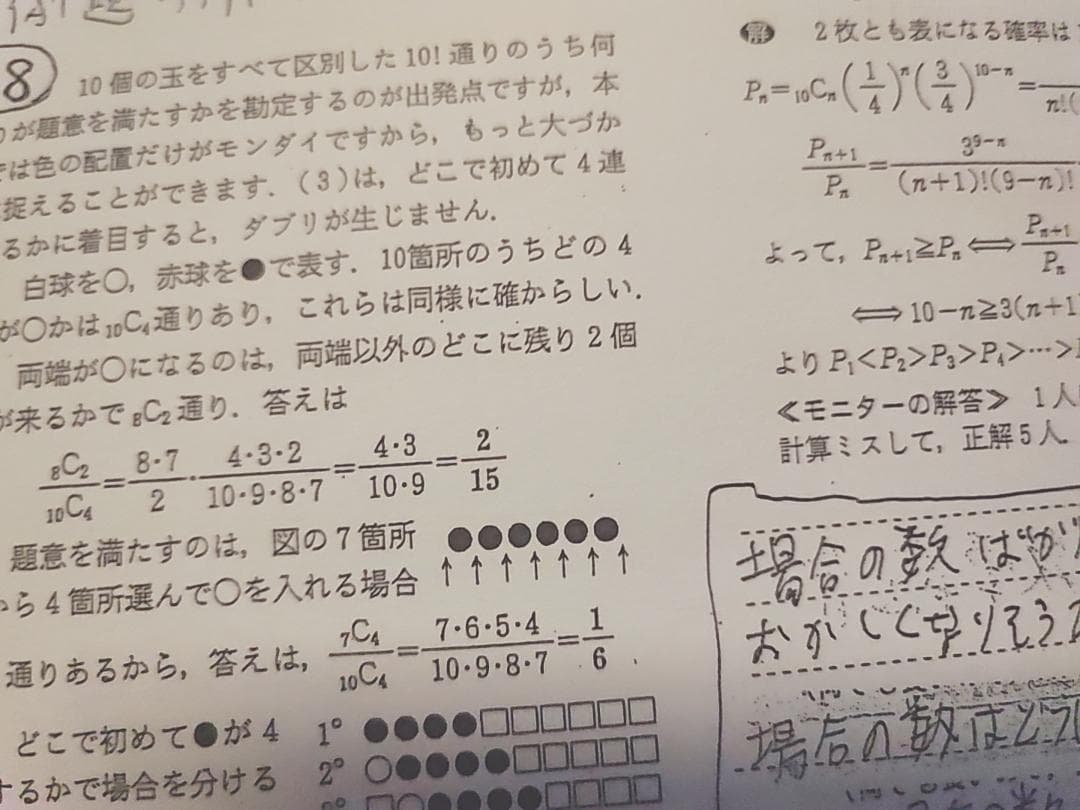 8
10個の玉をすべて区別した10! 通りのうち何
りが題意を満たすかを勘定するのが出発点ですが，本
では色の配置だけがモンダイですから，もっと大づか
捉えることができます．（3）は，どこで初めて4連
るかに着目すると，ダブリが生じません．
白球を○，赤球を●で表す．10箇所のうちどの4
が○かは₁₀C₄通りあり，これらは同様に確からしい．
両端が○になるのは，両端以外のどこに残り2個
が来るかで₈C₂通り．答えは
₈C₂/₁₀C₄=8・7/2・4・3・2/10・9・8・7=4・3/10・9=2/15
題意を満たすのは，図の7箇所 ●●●●●●
から4箇所選んで○を入れる場合 ↑↑↑↑↑↑↑
通りあるから，答えは，₇C₄/₁₀C₄=7・6・5・4/10・9・8・7=1/6．
どこで初めて●が4 1° ●●●●□□□□□□
するかで場合を分ける 2° ○●●●●□□□□□
□○●●●●
解 2枚とも表になる確率は
Pₙ=₁₀Cₙ(1/4)ⁿ(3/4)¹⁰⁻ⁿ=
Pₙ₊₁/Pₙ=3⁹⁻ⁿ/(n+1)!(9−n)!
よって，Pₙ₊₁≧Pₙ⟺Pₙ₊₁/Pₙ
⟺10−n≧3(n+1)
より P₁<P₂>P₃>P₄>…>
≪モニターの解答≫ 1人
計算ミスして，正解5人．
場合の数はが
おかしくなりそう
場合の数は